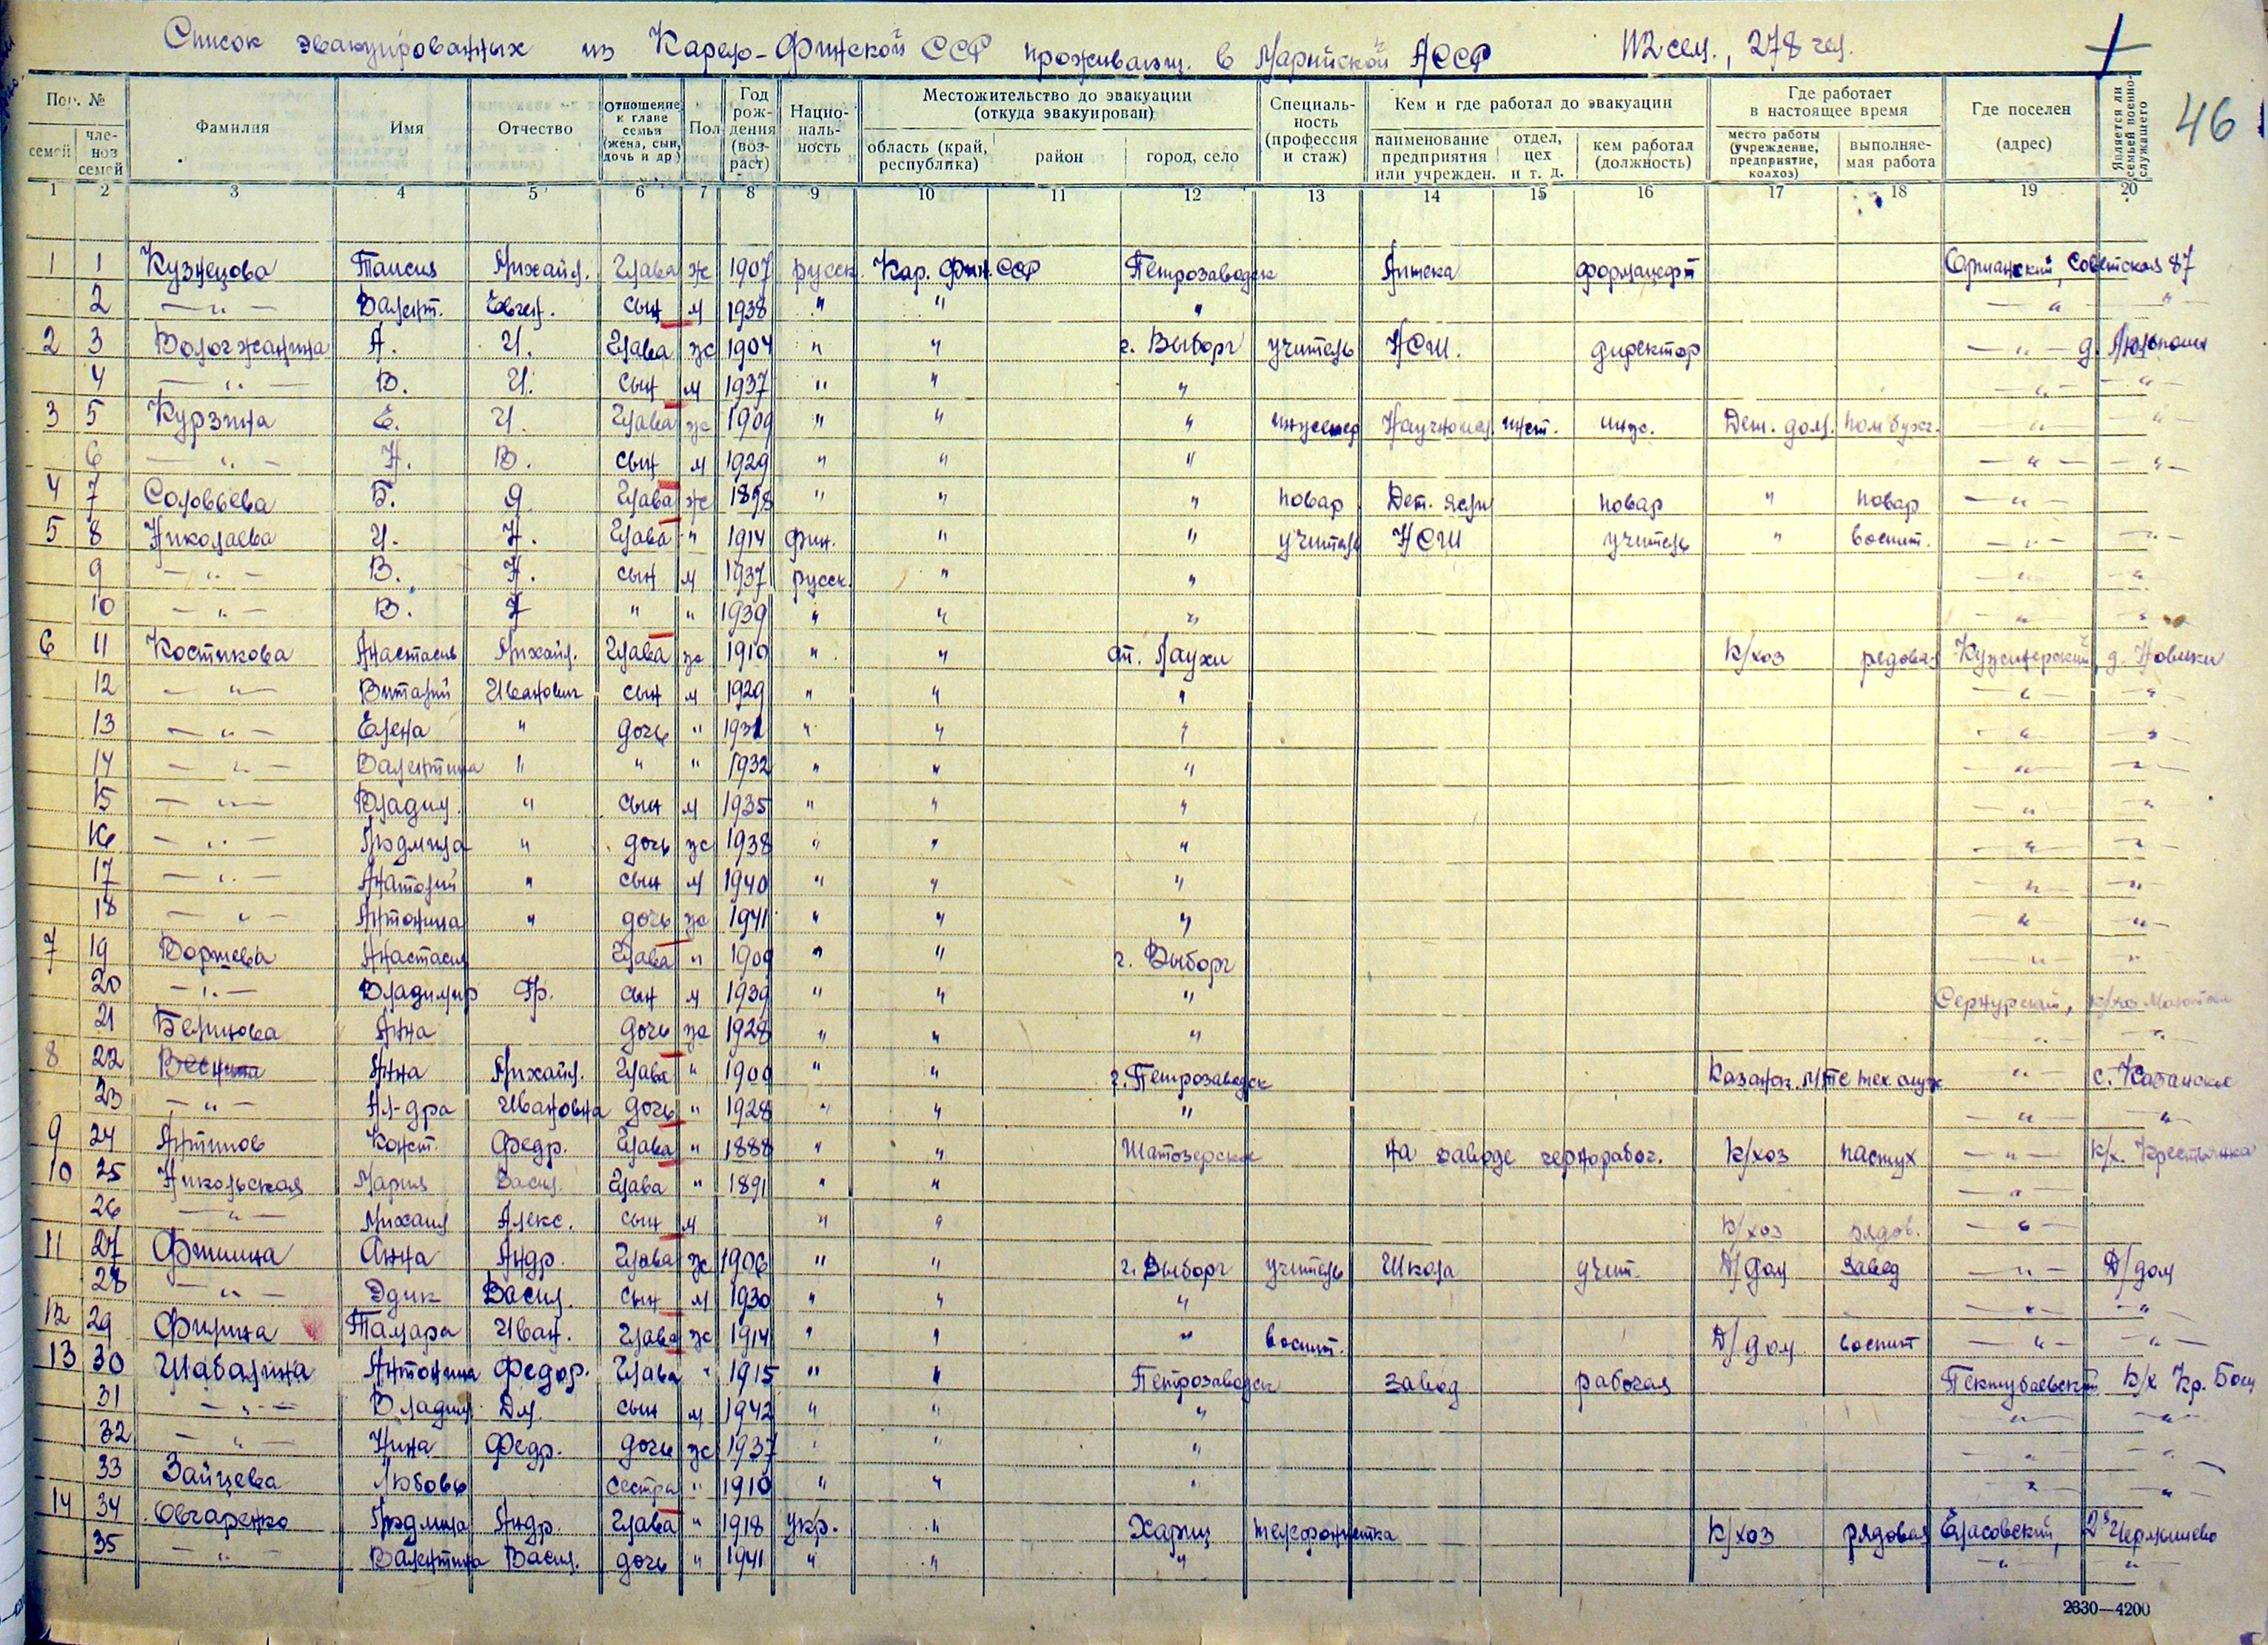 Список эвакуированных из Карело-Финской ССР проживающ. в Марийской АССР 112 сем., 278 чел.
46
Пор. № Фамилия Имя Отчество Отношение к главе семьи (жена, сын, дочь и др.) Пол Год рождения (возраст) Националь-ность Местожительство до эвакуации (откуда эвакуирован) Специаль-ность (профессия и стаж) Кем и где работал до эвакуации Где работает в настоящее время Где поселен (адрес) Является ли семьей военно-служащего
семей чле-нов семей область (край, республика) район город, село наименование предприятия или учрежден. отдел, цех и т. д. кем работал (должность) место работы (учреждение, предприятие, колхоз) выполняе-мая работа
1 2 3 4 5 6 7 8 9 10 11 12 13 14 15 16 17 18 19 20
1 1 Кузнецова Таисия Михайл. Глава ж 1907 русск. Кар. Фин. ССР Петрозаводск Аптека формацефт Оршанский, Советская 87
2 —„— Валент. Евген. сын м 1938 „ „ „ —„— „
2 3 Вологжанина А. И. Глава ж 1904 „ „ г. Выборг учитель НСШ. директор —„— д.
4 —„— В. И. сын м 1937 „ „ „ —„— —„—
3 5 Курзина Е. И. Глава ж 1909 „ „ „ инженер инст. инж. Дет. дом. пом бухг. „ „
6 —„— Н. В. сын м 1929 „ „ „ —„— —„—
4 7 Соловьева Б. Я. Глава ж 1898 „ „ „ повар Дет. ясли повар „ повар —„—
5 8 Николаева И. Н. Глава „ 1914 фин. „ „ учитель НСШ учитель „ воспит. —„— —„—
9 —„— В. Н. сын м 1937 русск. „ „ —„— —„—
10 —„— В. Н „ „ 1939 „ „ „ —„— —„—
6 11 Костикова Анастасия Михайл. Глава ж 1910 „ „ ст. Лоухи к/хоз рядовая Куженерский, д. Новики
12 —„— Виталий Иванович сын м 1929 „ „ „ —„— —„—
13 —„— Елена „ дочь „ 1931 „ „ „ —„— —„—
14 —„— Валентина „ „ „ 1932 „ „ „ —„— —„—
15 —„— Владим. „ сын м 1935 „ „ „ —„— —„—
16 —„— Людмила „ дочь ж 1938 „ „ „ —„— —„—
17 —„— Анатолий „ сын м 1940 „ „ „ —„— —„—
18 —„— Антонина „ дочь ж 1941 „ „ „ —„— —„—
7 19 Воржева Анастасия Глава „ 1909 „ „ г. Выборг —„— —„—
20 —„— Владимир Гр. сын м 1939 „ „ „ Сернурский, к/хоз
21 Белицова Анна дочь ж 1928 „ „ „ —„— —„—
8 22 Анна Михайл. Глава „ 1900 „ „ г. Петрозаводск Казанск. МТС тех. служ —„— с. Казанское
23 —„— Ал-дра Ивановна дочь „ 1928 „ „ „ —„— „
9 24 Антипов Конст. Федр. Глава „ 1888 „ „ Шатозерское на заводе чернорабоч. к/хоз пастух —„— к/х. Крестьянка
10 25 Никольская Мария Васил. Глава „ 1891 „ „ —„—
26 —„— Михаил Алекс. сын м „ „ к/хоз рядов. —„—
11 27 Анна Андр. Глава ж 1906 „ „ г. Выборг учитель Школа учит. Д/дом завед —„— Д/дом
28 —„— Эдик Васил. сын м 1930 „ „ „ —„— —„—
12 29 Филина Тамара Иван. Глава ж 1914 „ „ „ воспит. Д/дом воспит —„— —„—
13 30 Шабалина Антонина Федор. Глава „ 1915 „ „ Петрозаводск завод рабочая Пектубаевский к/х Кр. Боец
31 —„— Владим. Дм. сын м 1942 „ „ „ —„— —„—
32 —„— Нина Федр. дочь ж 1937 „ „ „ —„— „
33 Зайцева Любовь сестра „ 1910 „ „ „ —„— „
14 34 Овчаренко Людмила Андр. Глава „ 1918 укр. „ телефонистка к/хоз рядовая Еласовский,
35 —„— Валентина Васил. дочь „ 1941 „ „ „ —„— „
2630—4200